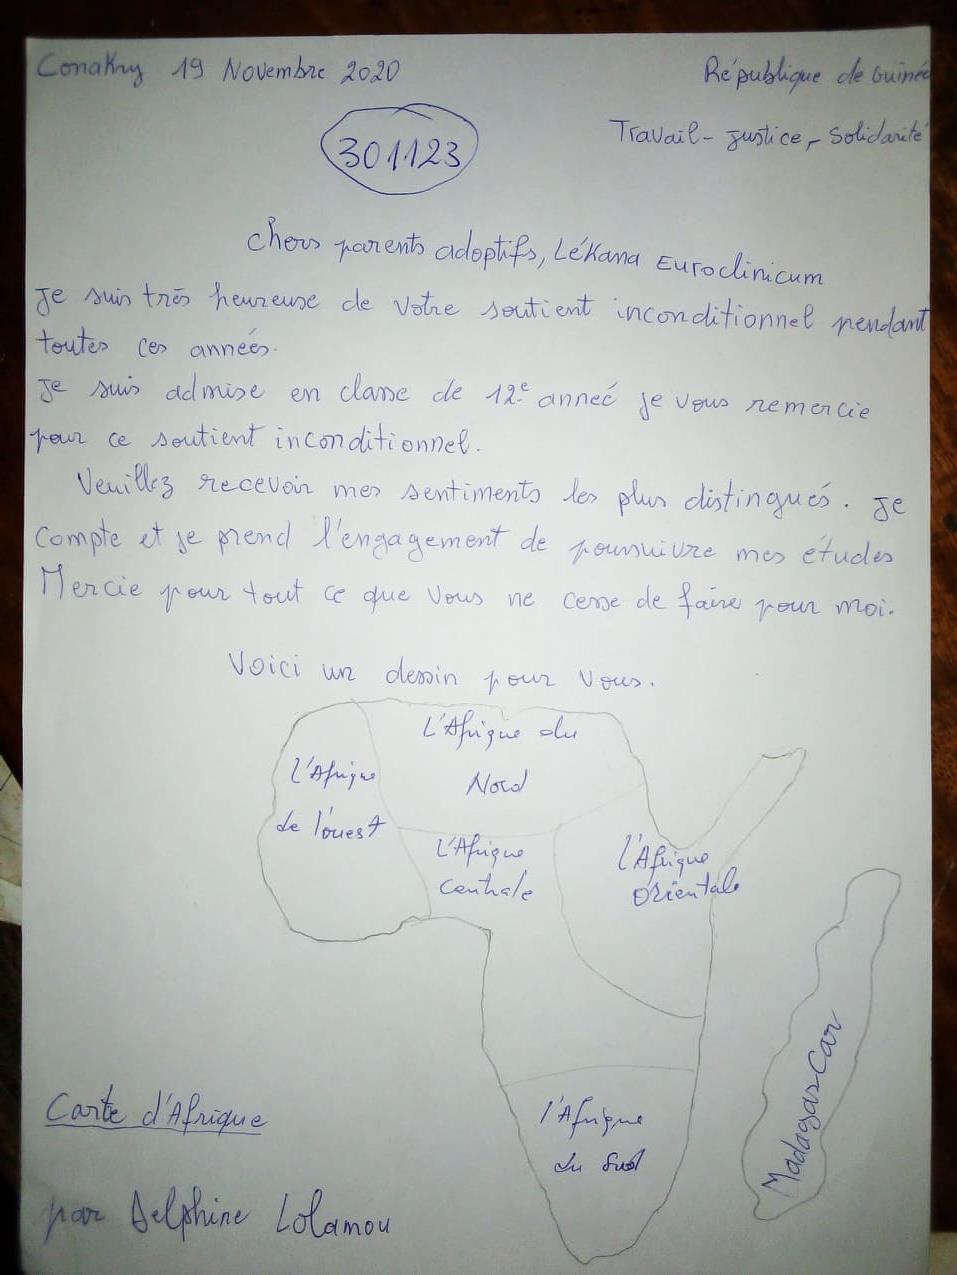 Conakry 19 Novembre 2020
République de Guinée
Travail - Justice - Solidarité
301123
Chers parents adoptifs, Lékana Euroclinicum
Je suis très heureuse de votre soutient inconditionnel pendant
toutes ces années.
Je suis admise en classe de 12e année je vous remercie
pour ce soutient inconditionnel.
Veuillez recevoir mes sentiments les plus distingués. Je
compte et je prend l'engagement de poursuivre mes études
Mercie pour tout ce que vous ne cesse de faire pour moi.
Voici un dessin pour vous.
L'Afrique du
Nord
L'Afrique
de l'ouest
L'Afrique
Centrale
l'Afrique
Orientale
l'Afrique
du Sud
Madagascar
Carte d'Afrique
par Delphine Lolamou